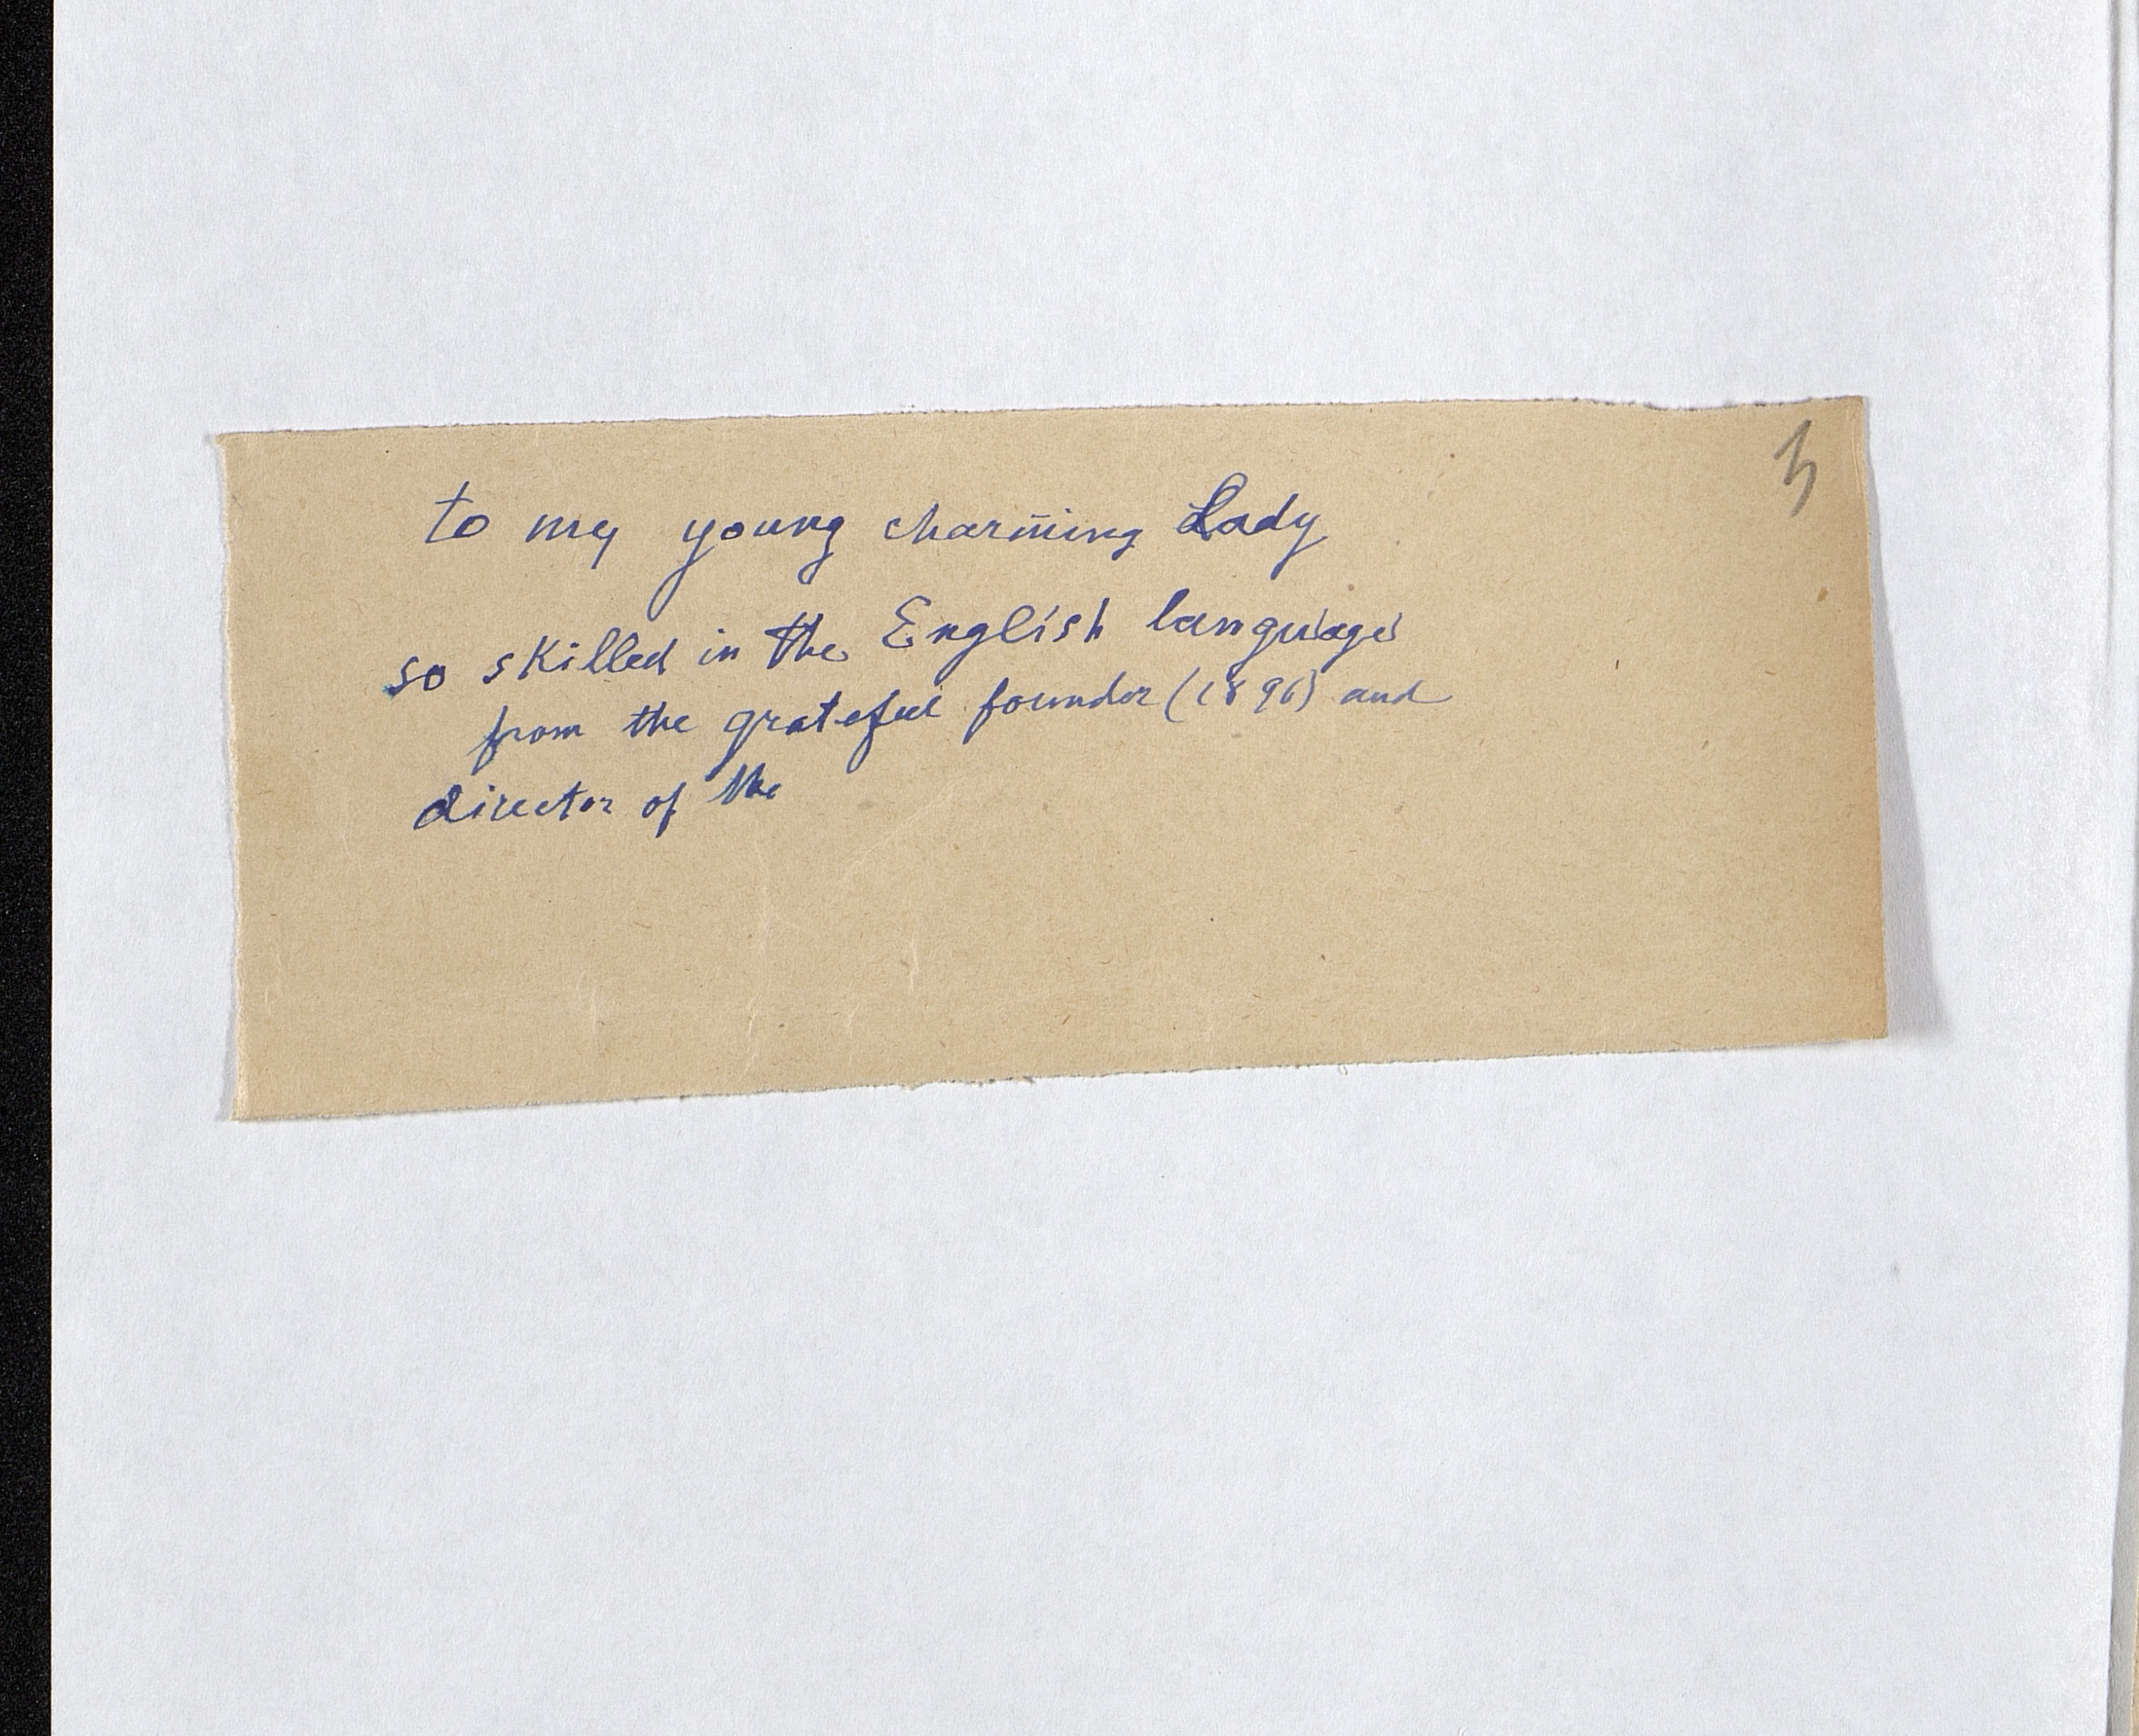 3
to my young charming Lady
so skilled in the English language
from the grateful founder (1896) and
director of the